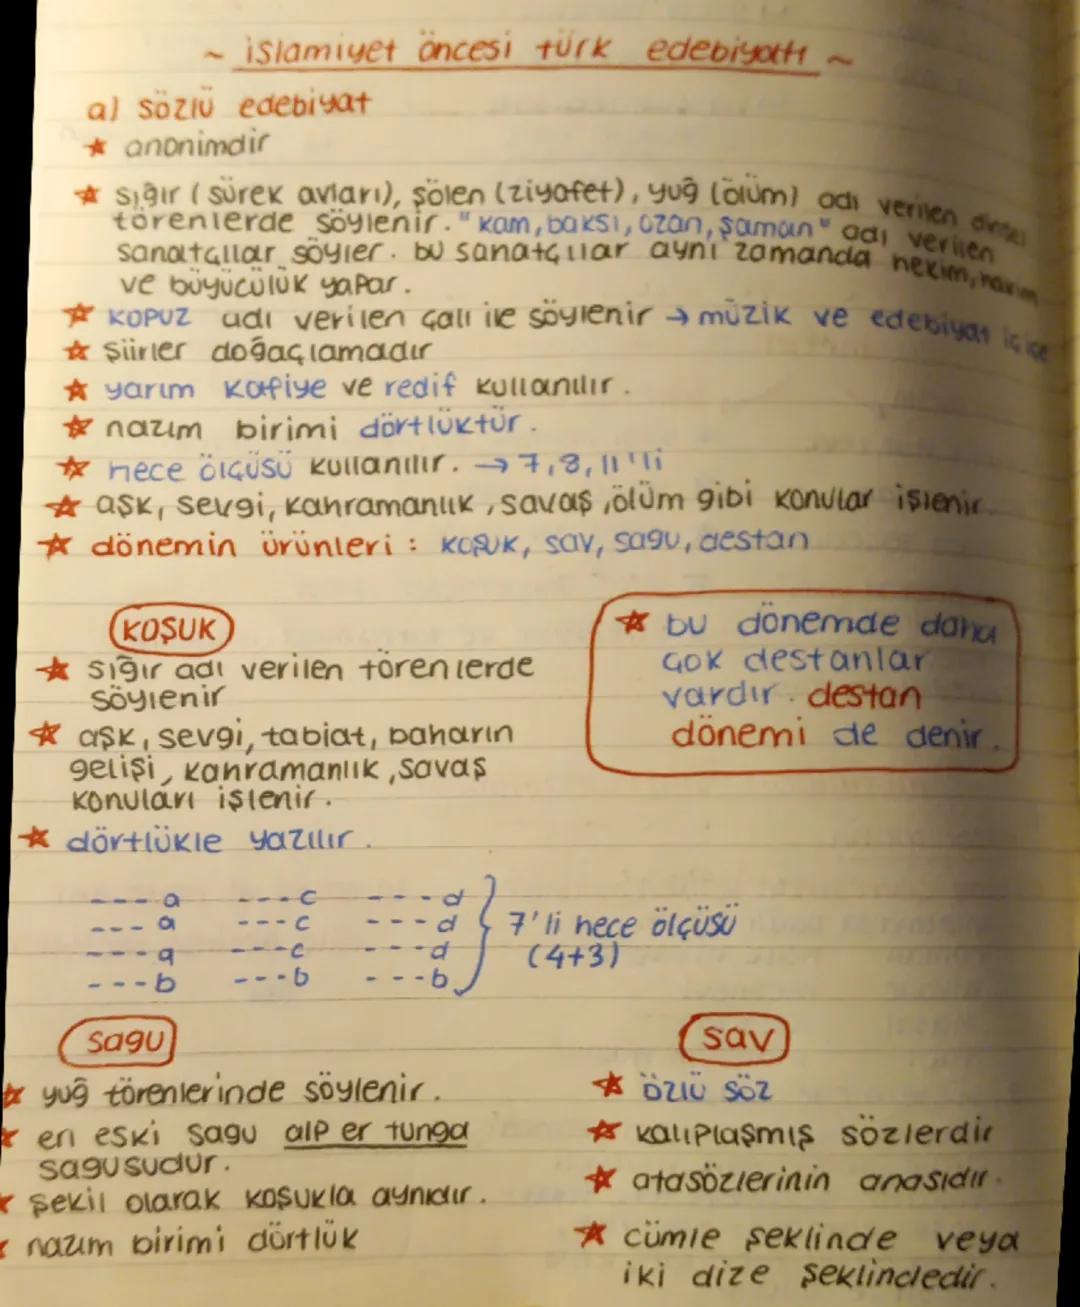 ~ islamiyet öncesi türk edebiyatı ~
a) sözlü edebiyat
☆ anonimdir
☆ sığır (sürek avları), şölen (ziyafet), yuğ (ölüm) adı verilen dinsel
törenlerde söylenir. "kam, baksı, ozan, şaman" adı verilen
sanatçılar söyler. bu sanatçılar aynı zamanda hekim,
ve büyücülük yapar.
☆ kopuz adı verilen çalı ile söylenir → müzik ve edebiyat iç içe
☆ şiirler doğaçlamadır
☆ yarım kafiye ve redif kullanılır.
☆ nazım birimi dörtlüktür.
☆ hece ölçüsü kullanılır. → 7, 8, 11'li
☆ aşk, sevgi, kahramanlık, savaş, ölüm gibi konular işlenir.
☆ dönemin ürünleri: koşuk, sav, sagu, destan
KOŞUK
☆ sığır adı verilen törenlerde
söylenir
☆ aşk, sevgi, tabiat, baharın
gelişi, kahramanlık, savaş
konuları işlenir.
☆ dörtlükle yazılır.
☆ bu dönemde daha
çok destanlar
vardır. destan
dönemi de denir.
---- a ---- c ---- d
--- a --- c --- d
---- a ---- c ---- d
--- b --- b --- b
7'li hece ölçüsü
(4+3)
sagu
☆ yuğ törenlerinde söylenir.
☆ en eski sagu alp er tunga
sagusudur.
☆ şekil olarak koşukla aynıdır.
☆ nazım birimi dörtlük
sav
☆ özlü söz
☆ kalıplaşmış sözlerdir
☆ atasözlerinin anasıdır.
☆ cümle şeklinde veya
iki dize şeklindedir.